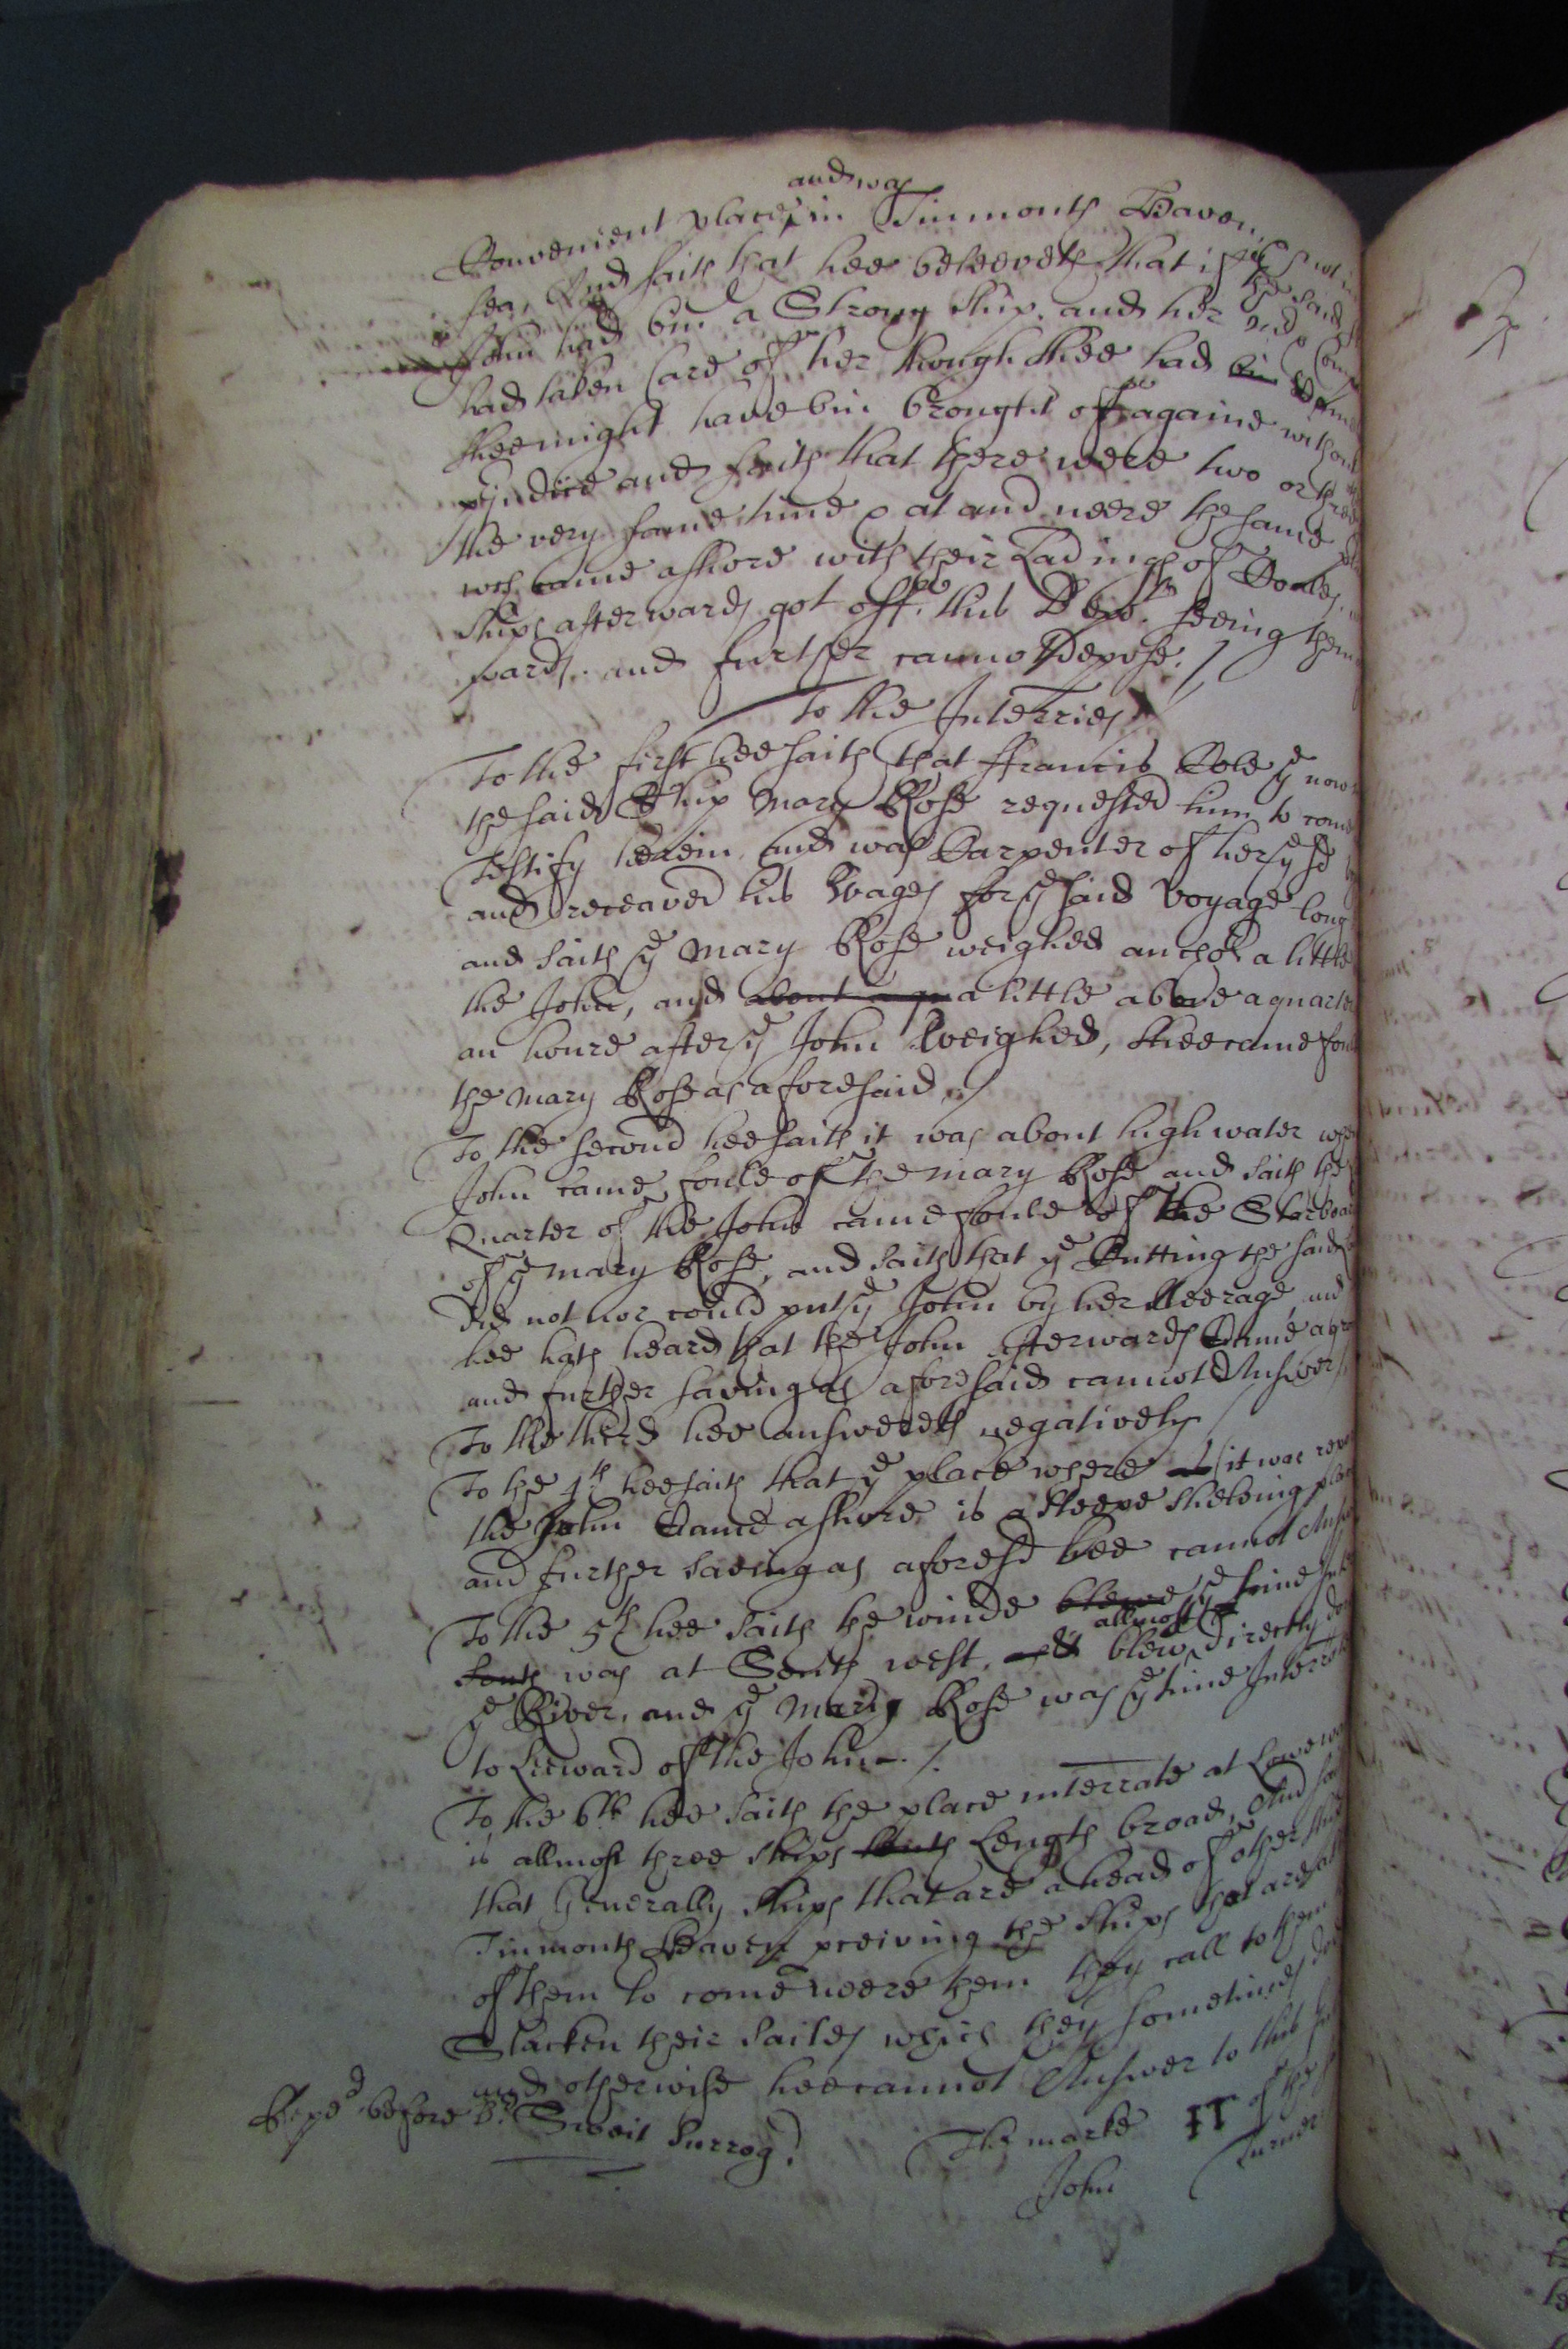 and was
Convenient place in Tinmouth Haven
sea, And saith that hee beleeveth that if the said
John had bin a Strong ship. and her
had taken Care of her though shee had bin
shee might have bin brought off againe without
prjudice and saith that there were two or three
the very same time at and neere the same
wch came ashore with their Ladings of Coales.
ships afterwards got off, this Dept. seeing them
wards. and further cannot depose. /
To the Interries
To the first hee saith that Francis Cole ye now
the said Ship Mary Rose requested him to come
Testify herein and was Carpenter of her ye sd
and receaved his Wages for ye said Voyage long
and saith ye Mary Rose weighed anchor a little
the John, and about a qu a little above a quarter
an houre after ye John Weighed, shee came
the Mary Rose as aforesaid. /
To the second hee saith it was about high water
John came foule of the Mary Rose and saith the
Quarter of the John came foule of the
of ye Mary Rose, and saith that ye Cutting the said
did not nor could put ye John by her steerage, and
hee hath heard that the John afterwards Came
and further saving as aforesaid cannot Answer /
To the third hee answereth negatively /
To the 4th hee saith that ye place where it was
the John Came ashore is a steepe shelving place
and further saveing as aforesd hee cannot
To the 5th hee saith the winde blewe ye time
allmost
South was at South west, and blew directly
ye River, and ye Mary Rose was ye time
to Leeward of the John. /.
To the 6th hee saith the place interrate at Lowe
is allmost three ships Length broad, And
that Generally ships that are ahead of other
Tinmouth Haven prceiving the ships that are
of them to come neere them they call to them
Slacken their Sailes which they sometimes
and otherwise hee cannot Answer to this
Reped before Dr Sweit Surrog.
The marke IT of the
John Turner